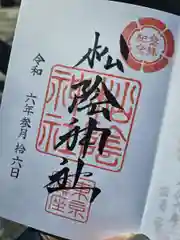 松陰神社
令和
六年参月拾六日
松陰
神社
東京